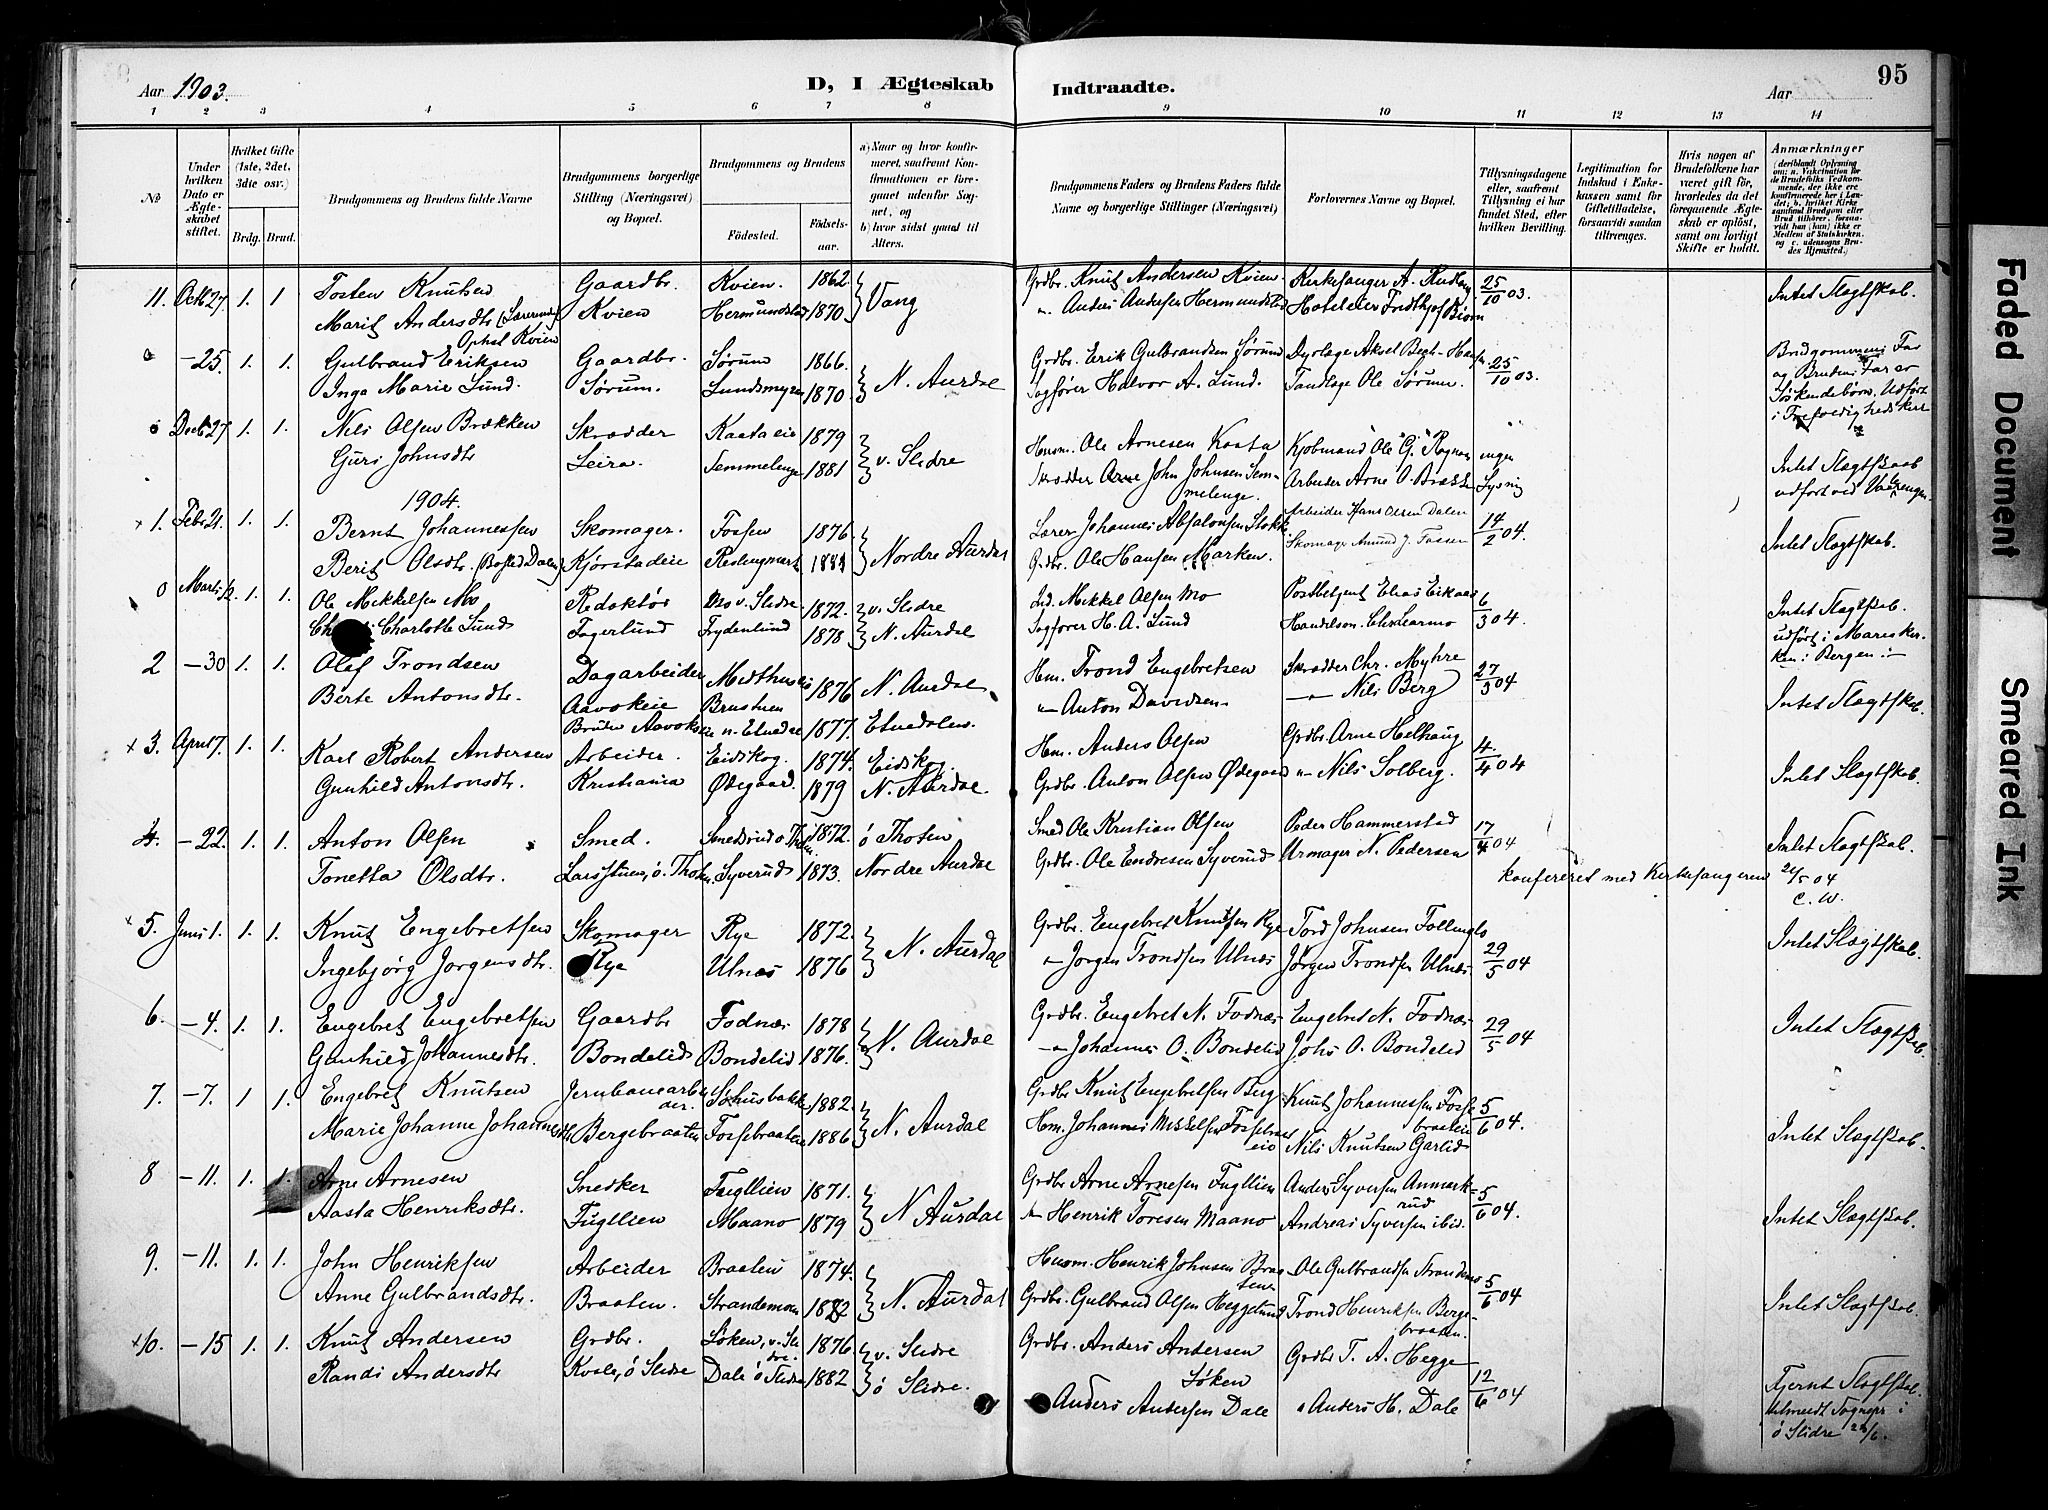 Aar 1903.
D, I Ægteskab Indtraadte.
Aar
95
1 2 3 4 5 6 7 8 9 10 11 12 13 14
No
Under hvilken Dato er Ægteskabet stiftet.
Hvilket Gifte (1ste, 2det, 3die osv.)
Brdg. Brud.
Brudgommens og Brudens fulde Navne
Brudgommens borgerlige Stilling (Næringsvei) og Bopæl.
Brudgommens og Brudens
Födested. Födselsaar.
a) Naar og hvor konfirmeret, saafremt Konfirmationen er foregaaet udenfor Sognet, og
b) hvor sidst gaaet til Alters.
Brudgommens Faders og Brudens Faders fulde Navne og borgerlige Stillinger (Næringsvei)
Forlovernes Navne og Bopæl.
Tillysningsdagene eller, saafremt Tillysning ei har fundet Sted, efter hvilken Bevilling.
Legitimation for Indskud i Enkekassen samt for Giftetilladelse, forsaavidt saadan tiltrænges.
Hvis nogen af Brudefolkene har været gift för, hvorledes da det foregaaende Ægteskab er oplöst, samt om lovligt Skifte er holdt.
Anmærkninger
(deriblandt Oplysning om: a. Vakcination for de Brudefolks Vedkommende, der ikke ere konfirmerede her i Landet; b. hvilket Kirkesamfund Brudgom eller Brud tilhörer, forsaavidt han (hun) ikke er Medlem af Statskirken, og c. udensogns Brudes Hjemsted.)
11. Octb 27. 1. 1 Tosten Knutsen Gaardbr. Kvien. 1862 Vang Grdbr. Knut Andersen Kvien. Kirkesanger A. 25/10 03. Intet Slægtskab.
Marit Andersdtr (Lærerinde) Kvien Hermundstad 1870 " Anders Andersen Hermundstad Hoteleier Fridthjof Bjørn
Ophol Kvien
0 -25. 1. 1. Gulbrand Eriksen Gaardbr. Sørum 1866. N. Aurdal Grdbr. Erik Gulbrandsen Sørum Dyrlæge Aksel Bech-Hansen. 25/10 03. Brudgommens Far
Inga Marie Lund. Sørum. Lundsmyren 1870 Sagfører Halvor A. Lund. Tandlæge Ole Sørum. og Brudens Far er
Søskendebørn. Udført
i Trefoldighedskirk
Decb 27 1. 1. Nils Olsen Brækken Skrædder Kaataeie 1879 v. Slidre Husm. Ole Arnesen Kaata Kjøbmand Ole G. ingen
Guri Johnsdtr Leira. Semmelenge 1881 Skrædder John Johnsen Semmelenge. Arbeider Arne O. Lysning Intet Slægtskab
udført ved
1904.
x 1. Feb. 21. 1. 1. Bernt Johannessen Skomager. Fossen 1876 Nordre Aurdal Lærer Johannes Absalonsen Arbeider Hans Olsen Dalen 14/2 04. Intet Slægtskab.
Berit Olsdtr. (Bosted Dalen) Kjørstadeie 1881 Grdbr. Ole Hansen Marken. Skomager Amund J. Fossen
0 Marts 1. 1. Ole Mikkelsen Mo Redaktør Mo v. Slidre 1872. v. Slidre Ind. Mikkel Olsen Mo 6/3 04. Intet Slægtskab.
Charlotte Lund Fagerlund Frydenlund 1878 N. Aurdal Sagfører H. A. Lund udført i Mariekirken i Bergen.
2 -30 1. 1. Olaf Trondsen Dagarbeider 1876 N. Aurdal Hm. Trond Engebretsen Skrædder Chr. Myhre 27/3 04
Berte Antonsdtr. Aavokeie Brustuen " Anton Davidsen -"- Nils Berg Intet Slægtskab.
Bruden n. Etnedal 1877. Etnedalen.
x 3. April 7. 1. 1. Karl Robert Andersen Arbeider. Eidskog. 1874. Eidskog. Hm. Anders Olsen Grdbr. Arne Helhaug 4/4 04 Intet Slægtskab.
Gunhild Antonsdtr. Kristiania Ødegaard. 1879 N. Aurdal. Grdbr. Anton Olsen Ødegaard " Nils Solberg.
4. -22. 1. 1. Anton Olsen Smed. 1872. ö Thoten Smed Ole Kristian Olsen Peder Hammerstad 17/4 04 Intet Slægtskab.
Tonetta Olsdtr. Larsstuen, ö. Thoten. Syverud 1873. Nordre Aurdal Grdbr. Ole Endresen Syverud Urmager N. Pedersen
konfereret med Kirkesangeren 24/5 04
C. W.
x 5. Juni 1. 1. 1. Knut Engebretsen Skomager Rye 1872. N. Aurdal Grdbr. Engebret Knutsen Rye Tord Johnsen Follinglo 29/5 04 Intet Slægtskab.
Ingebjørg Jørgensdtr. Rye Ulnæs 1876 " Jørgen Trondsen Ulnæs Jørgen Trondsen Ulnæs
6. -4. 1. 1. Engebret Engebretsen Gaardbr Fodnæs 1878 N. Aurdal Grdbr. Engebret N. Fodnæs Engebret N. Fodnæs 29/5 04 Intet Slægtskab.
Gunhild Johannesdtr. Bondelid Bondelid 1876. -"- Johannes O. Bondelid Johs O. Bondelid
7. -7. 1 1. Engebret Knutsen Jernbanearbeider. 1882. N. Aurdal Grdbr Knut Engebretsen Berg Knut Johannessen Fossebraaten 5/6 04.
Marie Johanne Johannesdtr Bergebraaten Fossebraaten 1886 Hm. Johannes Nils Knutsen Garlid Intet Slægtskab.
8 -11. 1. 1. Arne Arnesen Snedker Fugllien 1871. N. Aurdal Grdbr Arne Arnesen Fugllien Anders Syversen Anmarkrud 5/6 04.
Aasta Henriksdtr. Fugllien Maano 1879 " Henrik Toresen Maano Andreas Syversen ibid. Intet Slægtskab.
9. -11. 1. 1. John Henriksen Arbeider Braaten 1874. N. Aurdal Husm. Henrik Johnsen Braaten Ole Gulbrandsen Strandemo 5/6 04
Anne Gulbrandsdtr. Braaten. Strandemoen 1882 Grdbr. Gulbrand Olsen Heggelund Trond Henriksen Bergebraaten. Intet Slægtskab.
x 10. -15 1. 1. Knut Andersen Grdbr. Løken, v. Slidre. 1876 v. Slidre Grdbr. Anders Andersen Løken Grdbr T. A. Hegge 12/6 04
Randi Andersdtr ö Slidre Dale ö Slidre 1882 ö Slidre. Anders Andersen Dale " Anders H. Dale Fjernt Slægtskab.
tilmeldt Sognepr i
ö Slidre
Faded Document
Smeared Ink